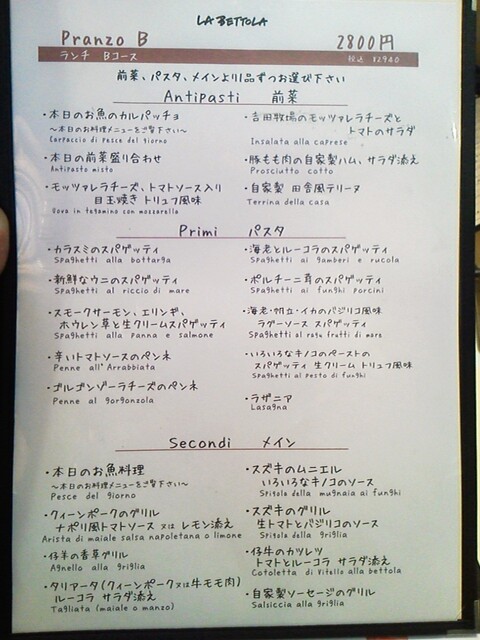 LA BETTOLA
Pranzo B 2800円
ランチ Bコース 税込 ¥2940
前菜、パスタ、メインより1品ずつお選び下さい
Antipasti 前菜
・本日のお魚のカルパッチョ
～本日のお料理メニューをご覧下さい～
Carpaccio di Pesce del giorno
・本日の前菜盛り合わせ
Antipasto misto
・モッツァレラチーズ、トマトソース入り
目玉焼き トリュフ風味
Uova in tegamino con mozzarella
・吉田牧場のモッツァレラチーズと
トマトのサラダ
Insalata alla caprese
・豚もも肉の自家製ハム、サラダ添え
Prosciutto cotto
・自家製 田舎風テリーヌ
Terrina della casa
Primi パスタ
・カラスミのスパゲッティ
Spaghetti alla bottarga
・新鮮なウニのスパゲッティ
Spaghetti al riccio di mare
・スモークサーモン、エリンギ、
ホウレン草と生クリームスパゲッティ
Spaghetti alla panna e salmone
・辛いトマトソースのペンネ
Penne all'Arrabbiata
・ゴルゴンゾーラチーズのペンネ
Penne al gorgonzola
・海老とルーコラのスパゲッティ
Spaghetti ai gamberi e rucola
・ポルチーニ茸のスパゲッティ
Spaghetti ai funghi porcini
・海老・帆立・イカのバジリコ風味
ラグーソース スパゲッティ
Spaghetti al ragu frutti di mare
・いろいろなキノコのペーストの
スパゲッティ 生クリーム トリュフ風味
Spaghetti al pesto di funghi
・ラザニア
Lasagna
Secondi メイン
・本日のお魚料理
～本日のお料理メニューをご覧下さい～
Pesce del giorno
・クィーンポークのグリル
ナポリ風トマトソース 又は レモン添え
Arista di maiale salsa napoletana o limone
・仔羊の香草グリル
Agnello alla griglia
・タリアータ(クィーンポーク又は牛モモ肉)
ルーコラ サラダ添え
Tagliata (maiale o manzo)
・スズキのムニエル
いろいろなキノコのソース
Spigola della mugnaia ai funghi
・スズキのグリル
生トマトとバジリコのソース
Spigola della griglia
・仔牛のカツレツ
トマトとルーコラ サラダ添え
Cotoletta di Vitello alla bettola
・自家製ソーセージのグリル
Salsiccia alla griglia